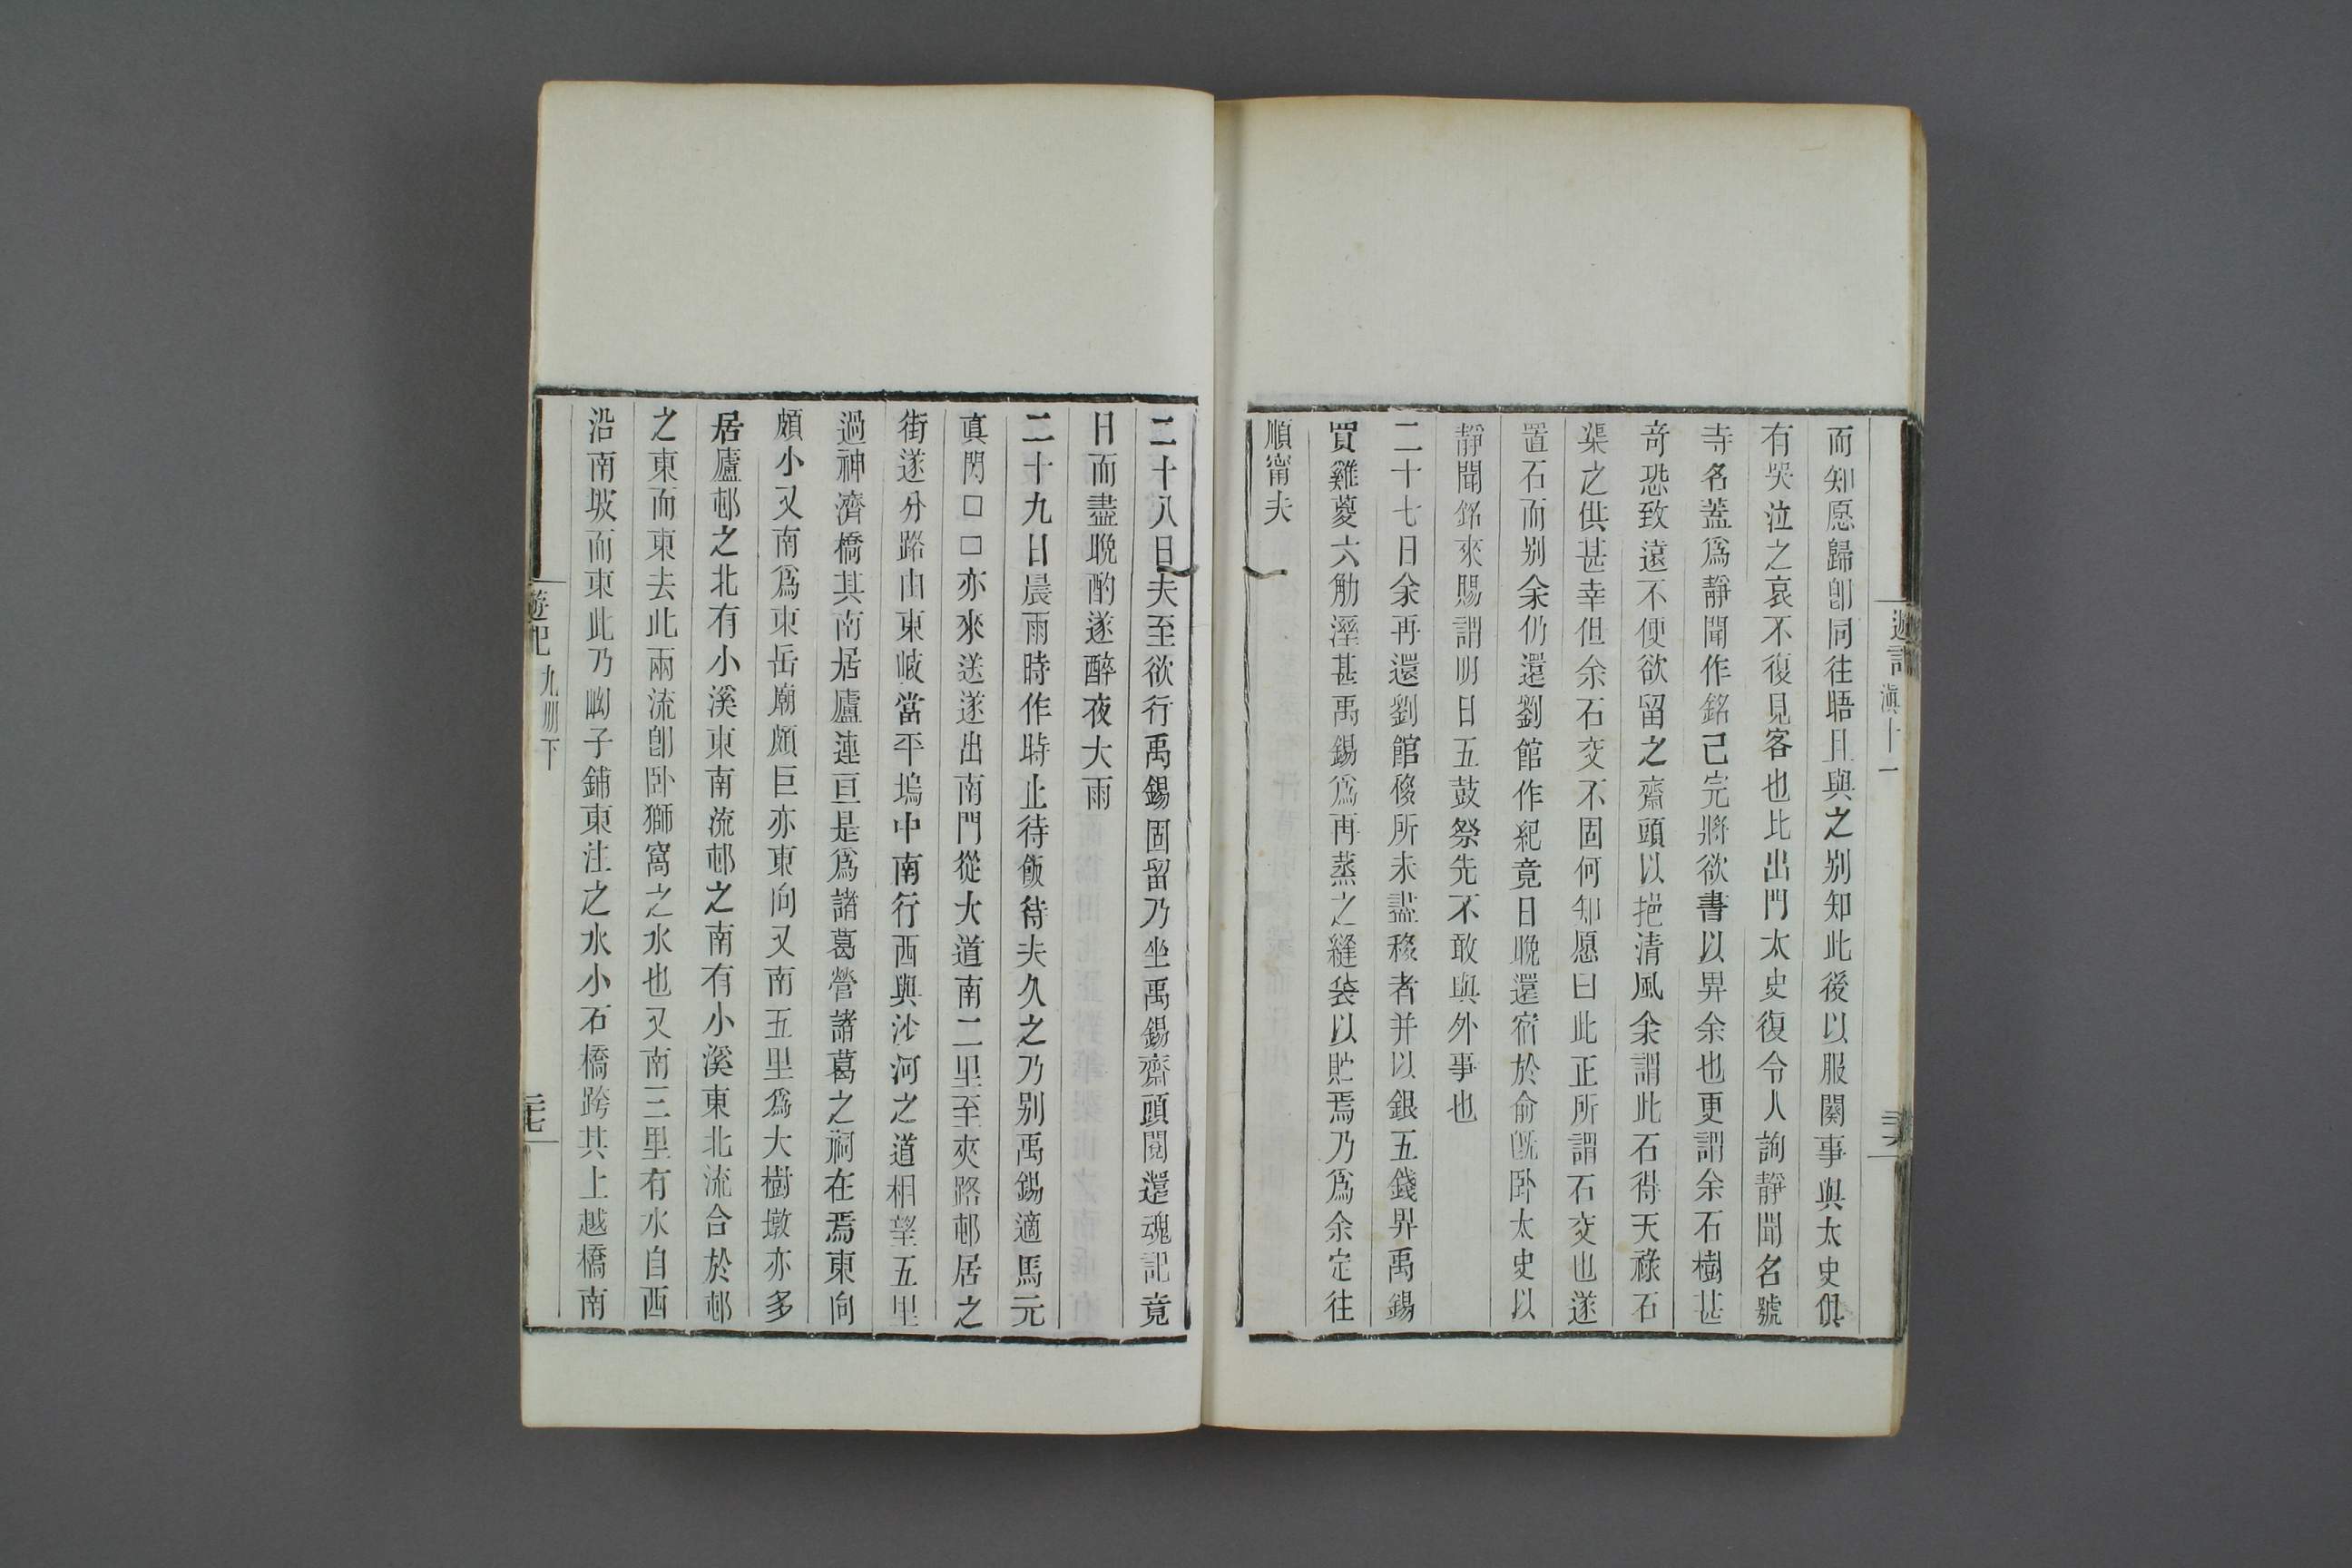 遊記 滇十一
而知愿歸卽同往晤且與之别知此後以服闋事與太史俱
有哭泣之哀不復見客也比出門太史復令人詢靜聞名號
寺名蓋爲靜聞作銘已完將欲書以畀余也更謂余石樹甚
奇恐致遠不便欲留之齋頭以挹清風余謂此石得天祿石
渠之供甚幸但余石交不固何知愿曰此正所謂石交也遂
置石而别余仍還劉館作紀竟日晚還宿於俞旣卧太史以
靜聞銘來賜謂明日五鼓祭先不敢與外事也
二十七日余再還劉館移所未盡移者并以銀五錢畀禹錫
買雞葼六觔溼甚禹錫爲再蒸之縫袋以貯焉乃爲余定往
順甯夫
二十八日夫至欲行禹錫固留乃坐禹錫齋頭閱還魂記竟
日而盡晚酌遂醉夜大雨
二十九日晨雨時作時止待飯待夫久之乃别禹錫適馬元
眞閃□□亦來送遂出南門從大道南二里至夾路邨居之
街遂分路由東岐當平塢中南行西與沙河之道相望五里
過神濟橋其南居廬連亘是爲諸葛營諸葛之祠在焉東向
頗小又南爲東岳廟頗巨亦東向又南五里爲大樹墩亦多
居廬邨之北有小溪東南流邨之南有小溪東北流合於邨
之東而東去此兩流卽卧獅窩之水也又南三里有水自西
沿南坡而東此乃㘭子鋪東注之水小石橋跨其上越橋南
遊記 九册下